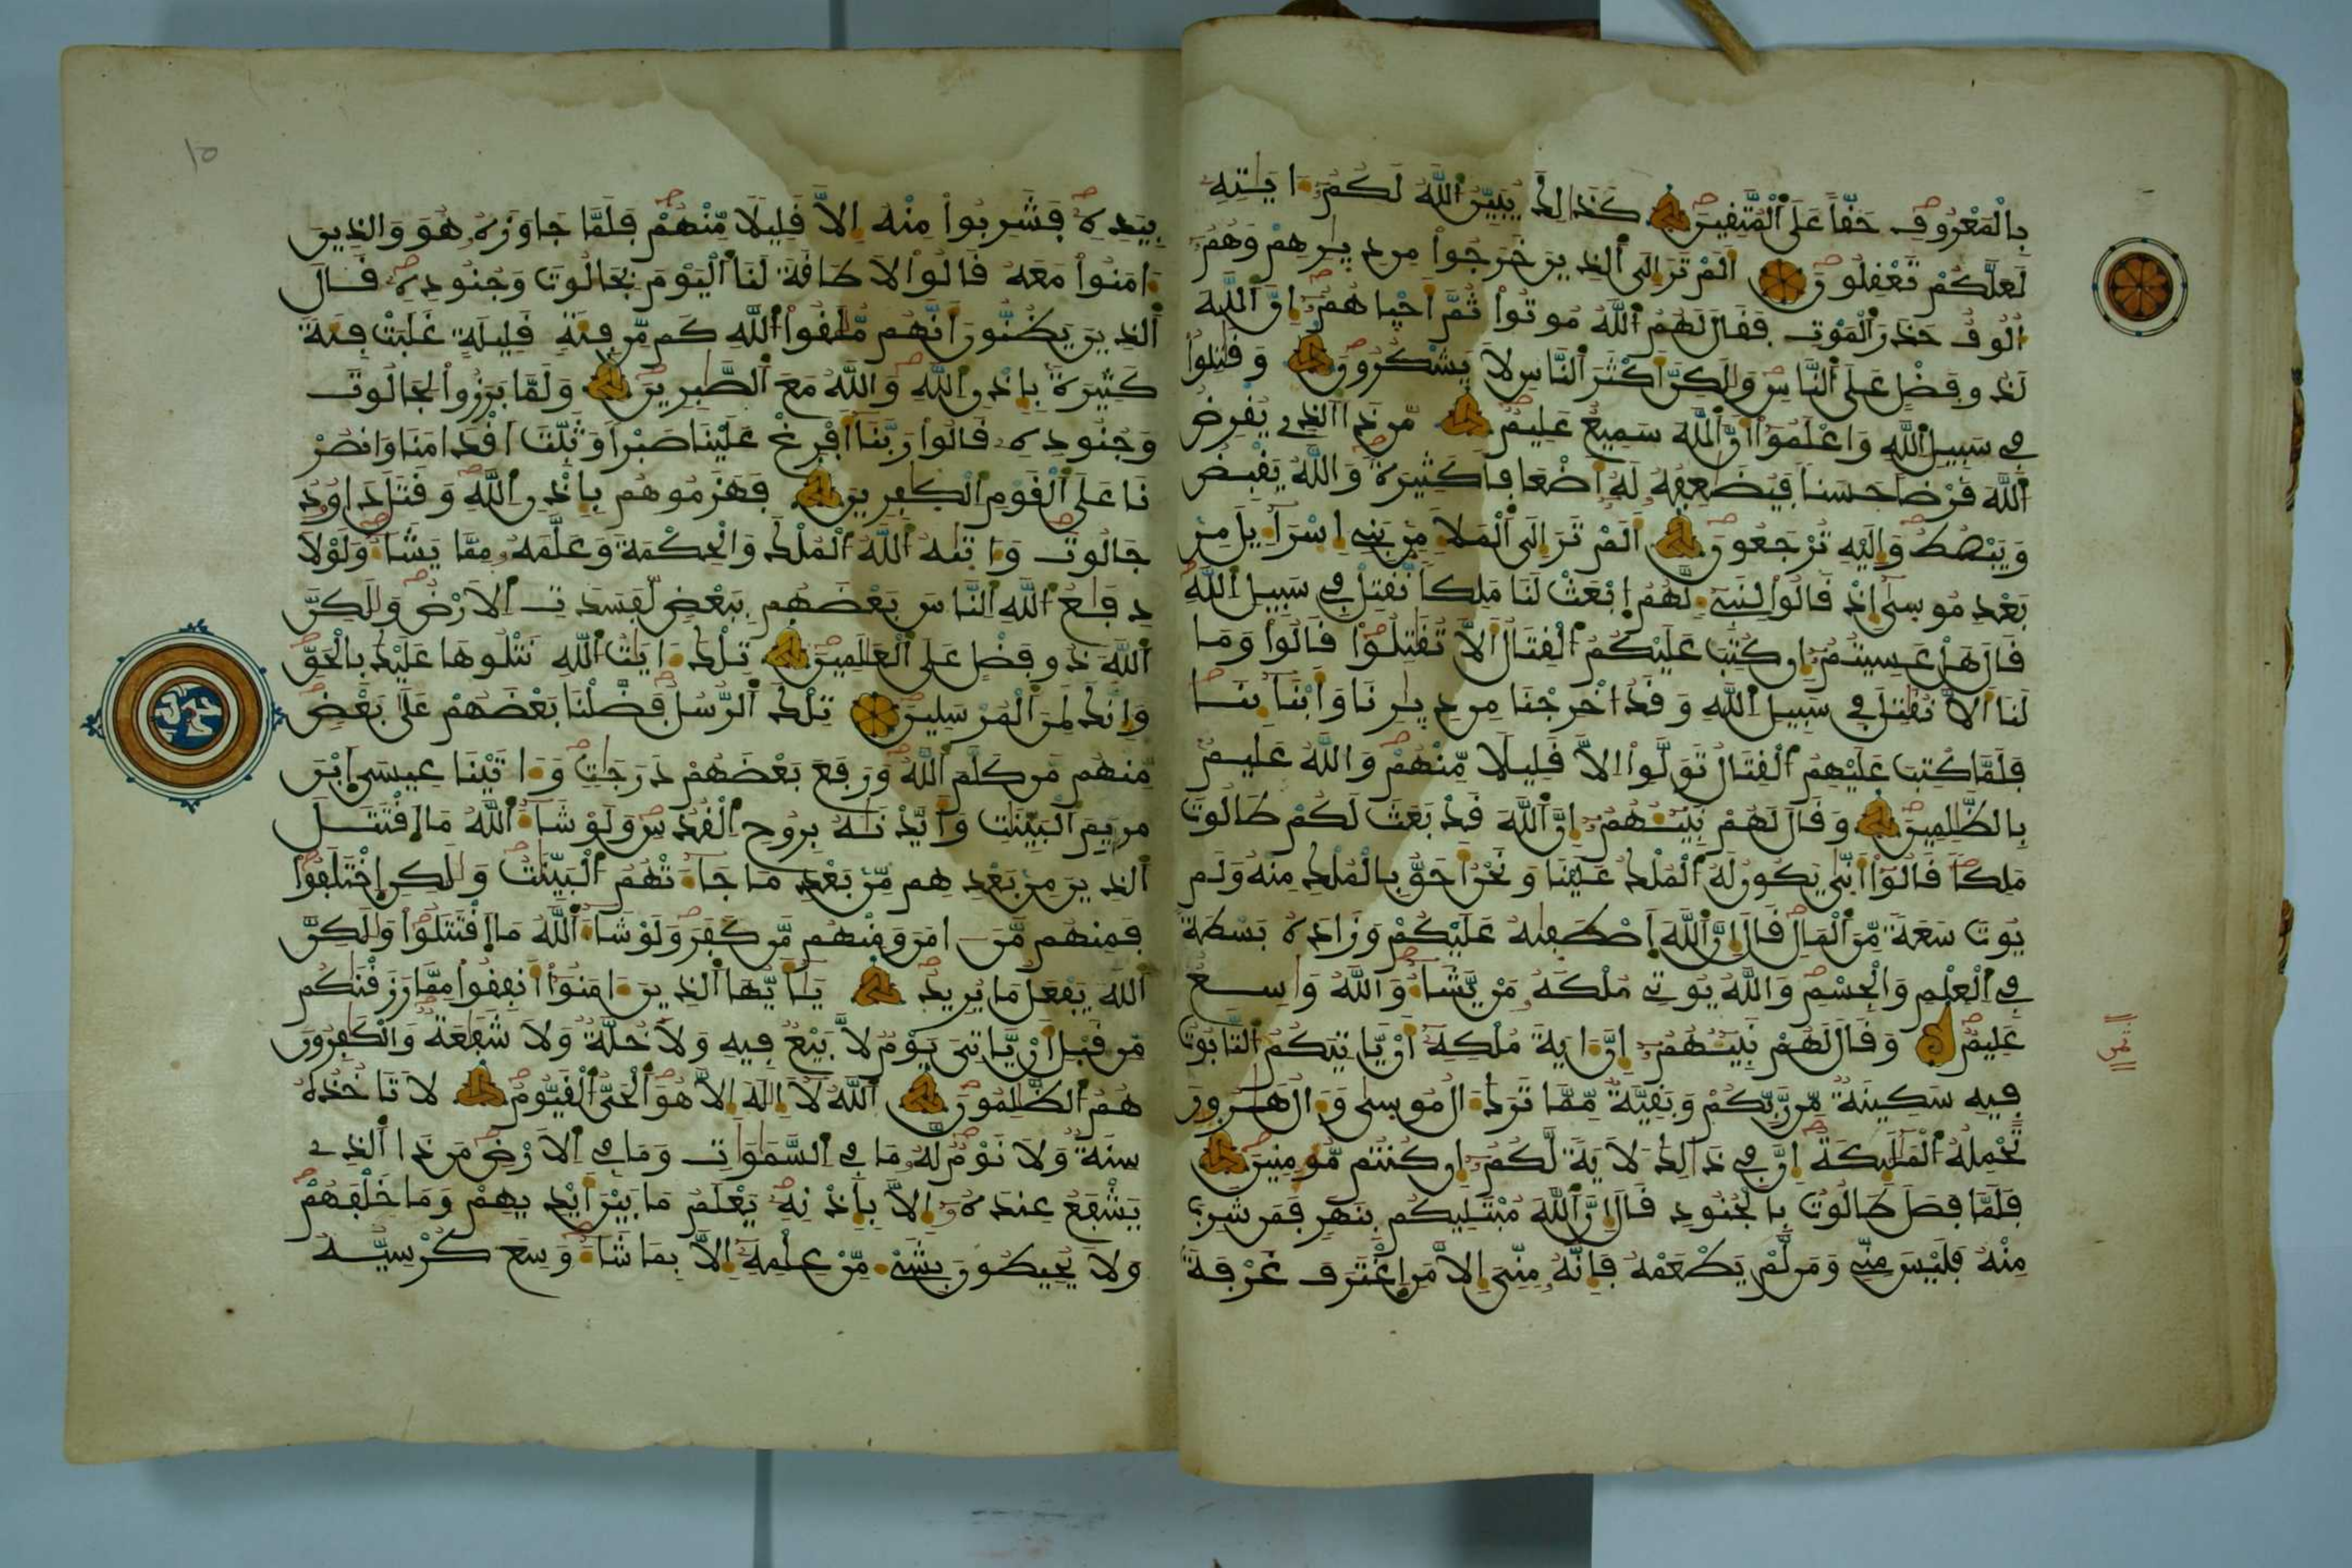 بِالْمَعْرُوفِ حَقّاً عَلَى ٱلْمُتَّقِينَ كَذَٰلِكَ يُبَيِّنُ ٱللَّهُ لَكُمُۥٓ ءَايَـٰتِهِۦ
لَعَلَّكُمْ تَعْقِلُونَ أَلَمْ تَرَ إِلَى ٱلذِينَ خَرَجُواْ مِن دِيـٰرِهِمْ وَهُمُۥٓ
أُلُوفٌ حَذَرَ ٱلْمَوْتِ فَقَالَ لَهُمُ ٱللَّهُ مُوتُواْ ثُمَّ أَحْيـٰهُمُۥٓ إِنَّ ٱللَّهَ
لَذُو فَضْلٍ عَلَى ٱلنَّاسِ وَلَـٰكِنَّ أَكْثَرَ ٱلنَّاسِ لَا يَشْكُرُونَ وَقَـٰتِلُواْ
فِي سَبِيلِ ٱللَّهِ وَاعْلَمُوٓاْ أَنَّ ٱللَّهَ سَمِيعٌ عَلِيمٌ مَّن ذَا ٱلذِي يُقْرِضُ
ٱللَّهَ قَرْضاً حَسَناً فَيُضَـٰعِفُهُۥ لَهُۥٓ أَضْعَافاً كَثِيرَةً وَاللَّهُ يَقْبِضُ
وَيَبْصُطُ وَإِلَيْهِ تُرْجَعُونَ أَلَمْ تَرَ إِلَى ٱلْمَلَإِ مِنۢ بَنِيٓ إِسْرَآءِيلَ مِنۢ
بَعْدِ مُوسَىٰٓ إِذْ قَالُواْ لِنَبِيٓءٍ لَّهُمُ ٱبْعَثْ لَنَا مَلِكاً نُّقَـٰتِلْ فِي سَبِيلِ ٱللَّهِ
قَالَ هَلْ عَسِيتُمُۥٓ إِن كُتِبَ عَلَيْكُمُ ٱلْقِتَالُ أَلَّا تُقَـٰتِلُواْ قَالُواْ وَمَا
لَنَآ أَلَّا نُقَـٰتِلَ فِي سَبِيلِ ٱللَّهِ وَقَدُ ٱخْرِجْنَا مِن دِيـٰرِنَا وَأَبْنَآئِنَا
فَلَمَّا كُتِبَ عَلَيْهِمُ ٱلْقِتَالُ تَوَلَّوِاْ إِلَّا قَلِيلًا مِّنْهُمْ وَاللَّهُ عَلِيمٌۢ
بِالظَّـٰلِمِينَ وَقَالَ لَهُمْ نَبِيٓـُٔهُمُۥٓ إِنَّ ٱللَّهَ قَدْ بَعَثَ لَكُمْ طَالُوتَ
مَلِكاً قَالُوٓاْ أَنَّىٰ يَكُونُ لَهُ ٱلْمُلْكُ عَلَيْنَا وَنَحْنُ أَحَقُّ بِالْمُلْكِ مِنْهُ وَلَمْ
يُوتَ سَعَةً مِّنَ ٱلْمَالِ قَالَ إِنَّ ٱللَّهَ ٱصْطَفَىٰهُ عَلَيْكُمْ وَزَادَهُۥ بَسْطَةً
فِي ٱلْعِلْمِ وَالْجِسْمِ وَاللَّهُ يُوتِي مُلْكَهُۥ مَنْ يَّشَآءُ وَاللَّهُ وَاسِعٌ
عَلِيمٌ وَقَالَ لَهُمْ نَبِيٓـُٔهُمُۥٓ إِنَّ ءَايَةَ مُلْكِهِۦٓ أَنْ يَّاتِيَكُمُ ٱلتَّابُوتُ
فِيهِ سَكِينَةٌ مِّن رَّبِّكُمْ وَبَقِيَّةٌ مِّمَّا تَرَكَ ءَالُ مُوسَىٰ وَءَالُ هَـٰرُونَ
تَحْمِلُهُ ٱلْمَلَـٰٓئِكَةُ إِنَّ فِي ذَٰلِكَ لَأٓيَةً لَّكُمُۥٓ إِن كُنتُم مُّومِنِينَ
فَلَمَّا فَصَلَ طَالُوتُ بِالْجُنُودِ قَالَ إِنَّ ٱللَّهَ مُبْتَلِيكُم بِنَهَرٍ فَمَن شَرِبَ
مِنْهُ فَلَيْسَ مِنِّي وَمَن لَّمْ يَطْعَمْهُ فَإِنَّهُۥ مِنِّيَ إِلَّا مَنِ ٱغْتَرَفَ غَرْفَةَۢ
١٥
بِيَدِهِۦ فَشَرِبُواْ مِنْهُ إِلَّا قَلِيلًا مِّنْهُمْ فَلَمَّا جَاوَزَهُۥ هُوَ وَالذِينَ
ءَامَنُواْ مَعَهُ قَالُواْ لَا طَاقَةَ لَنَا ٱلْيَوْمَ بِجَالُوتَ وَجُنُودِهِۦ قَالَ
ٱلذِينَ يَظُنُّونَ أَنَّهُم مُّلَـٰقُواْ ٱللَّهِ كَم مِّن فِئَةٍ قَلِيلَةٍ غَلَبَتْ فِئَةً
كَثِيرَةَۢ بِإِذْنِ ٱللَّهِ وَاللَّهُ مَعَ ٱلصَّـٰبِرِينَ وَلَمَّا بَرَزُواْ لِجَالُوتَ
وَجُنُودِهِۦ قَالُواْ رَبَّنَآ أَفْرِغْ عَلَيْنَا صَبْراً وَثَبِّتَ ٱقْدَامَنَا وَانصُرْ
نَا عَلَى ٱلْقَوْمِ ٱلْكـٰفِرِينَ فَهَزَمُوهُم بِإِذْنِ ٱللَّهِ وَقَتَلَ دَاوُۥدُ
جَالُوتَ وَءَاتَىٰهُ ٱللَّهُ ٱلْمُلْكَ وَالْحِكْمَةَ وَعَلَّمَهُۥ مِمَّا يَشَآءُ وَلَوْلَا
دِفَـٰعُ ٱللَّهِ ٱلنَّاسَ بَعْضَهُم بِبَعْضٍ لَّفَسَدَتِ ٱلَارْضُ وَلَـٰكِنَّ
ٱللَّهَ ذُو فَضْلٍ عَلَى ٱلْعَـٰلَمِينَ تِلْكَ ءَايَـٰتُ ٱللَّهِ نَتْلُوهَا عَلَيْكَ بِالْحَقِّ
وَإِنَّكَ لَمِنَ ٱلْمُرْسَلِينَ تِلْكَ ٱلرُّسُلُ فَضَّلْنَا بَعْضَهُمْ عَلَىٰ بَعْضٍ
مِّنْهُم مَّن كَلَّمَ ٱللَّهُ وَرَفَعَ بَعْضَهُمْ دَرَجَـٰتٍ وَءَاتَيْنَا عِيسَى ٱبْنَ
مَرْيَمَ ٱلْبَيِّنَـٰتِ وَأَيَّدْنَـٰهُ بِرُوحِ ٱلْقُدُسِ وَلَوْ شَآءَ ٱللَّهُ مَا ٱقْتَتَلَ
ٱلذِينَ مِنۢ بَعْدِهِم مِّنۢ بَعْدِ مَا جَآءَتْهُمُ ٱلْبَيِّنَـٰتُ وَلَـٰكِنِ ٱخْتَلَفُواْ
فَمِنْهُم مَّنَ ـامَنَ وَمِنْهُم مَّن كَفَرَ وَلَوْ شَآءَ ٱللَّهُ مَا ٱقْتَتَلُواْ وَلَـٰكِنَّ
ٱللَّهَ يَفْعَلُ مَا يُرِيدُ يَـٰٓأَيُّهَا ٱلذِينَ ءَامَنُوٓاْ أَنفِقُواْ مِمَّا رَزَقْنَـٰكُم
مِّن قَبْلِ أَنْ يَّاتِيَ يَوْمٌ لَّا بَيْعٌ فِيهِ وَلَا خُلَّةٌ وَلَا شَفَـٰعَةٌ وَالْكَـٰفِرُونَ
هُمُ ٱلظَّـٰلِمُونَ ٱللَّهُ لَآ إِلَـٰهَ إِلَّا هُوَ ٱلْحَيُّ ٱلْقَيُّومُ لَا تَاخُذُهُۥ
سِنَةٌ وَلَا نَوْمٌ لَّهُۥ مَا فِي ٱلسَّمَـٰوَٰتِ وَمَا فِي ٱلَارْضِ مَن ذَا ٱلذِي
يَشْفَعُ عِندَهُۥٓ إِلَّا بِإِذْنِهِۦ يَعْلَمُ مَا بَيْنَ أَيْدِيهِمْ وَمَا خَلْفَهُمْ
وَلَا يُحِيطُونَ بِشَيْءٍ مِّنْ عِلْمِهِۦٓ إِلَّا بِمَا شَآءَ وَسِعَ كُرْسِيُّهُ